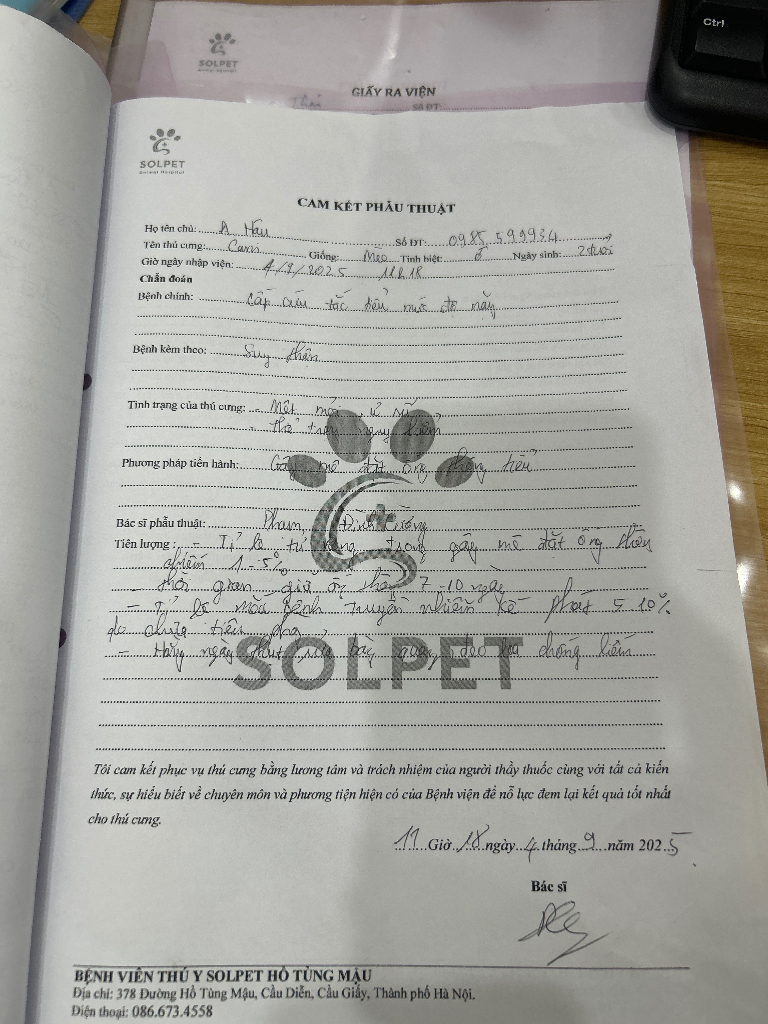 Ctrl
SOLPET
Animal Hospital
GIẤY RA VIỆN
Số ĐT:
SOLPET
Animal Hospital
CAM KẾT PHẪU THUẬT
Họ tên chủ: A Hậu Số ĐT: 0985 599934
Tên thú cưng: Cam Giống: Mèo Tính biệt: ♂ Ngày sinh: 2 tuổi
Giờ ngày nhập viện: 4/9/2025 11h18
Chẩn đoán
Bệnh chính: Cấp cứu tắc tiểu
Bệnh kèm theo: Suy thận
Tình trạng của thú cưng: - Mệt mỏi, ủ rũ
- thở
Phương pháp tiến hành: Gây mê đặt ống thông tiểu
Bác sĩ phẫu thuật: Phạm Đình Cường
Tiên lượng: - Tỷ lệ tử vong trong gây mê đặt ống thông
chiếm 1-5%
- thời gian giữ ống thông 7-10 ngày
- Tỷ lệ mắc bệnh truyền nhiễm kế phát 5 10%
do chưa tiêm phòng
- Hằng ngày hút rửa bàng quang, đeo loa chống liếm
SOLPET
Tôi cam kết phục vụ thú cưng bằng lương tâm và trách nhiệm của người thầy thuốc cùng với tất cả kiến
thức, sự hiểu biết về chuyên môn và phương tiện hiện có của Bệnh viện để nỗ lực đem lại kết quả tốt nhất
cho thú cưng.
11 Giờ 18 ngày 4 tháng 9 năm 2025
Bác sĩ
BỆNH VIỆN THÚ Y SOLPET HỒ TÙNG MẬU
Địa chỉ: 378 Đường Hồ Tùng Mậu, Cầu Diễn, Cầu Giấy, Thành phố Hà Nội.
Điện thoại: 086.673.4558